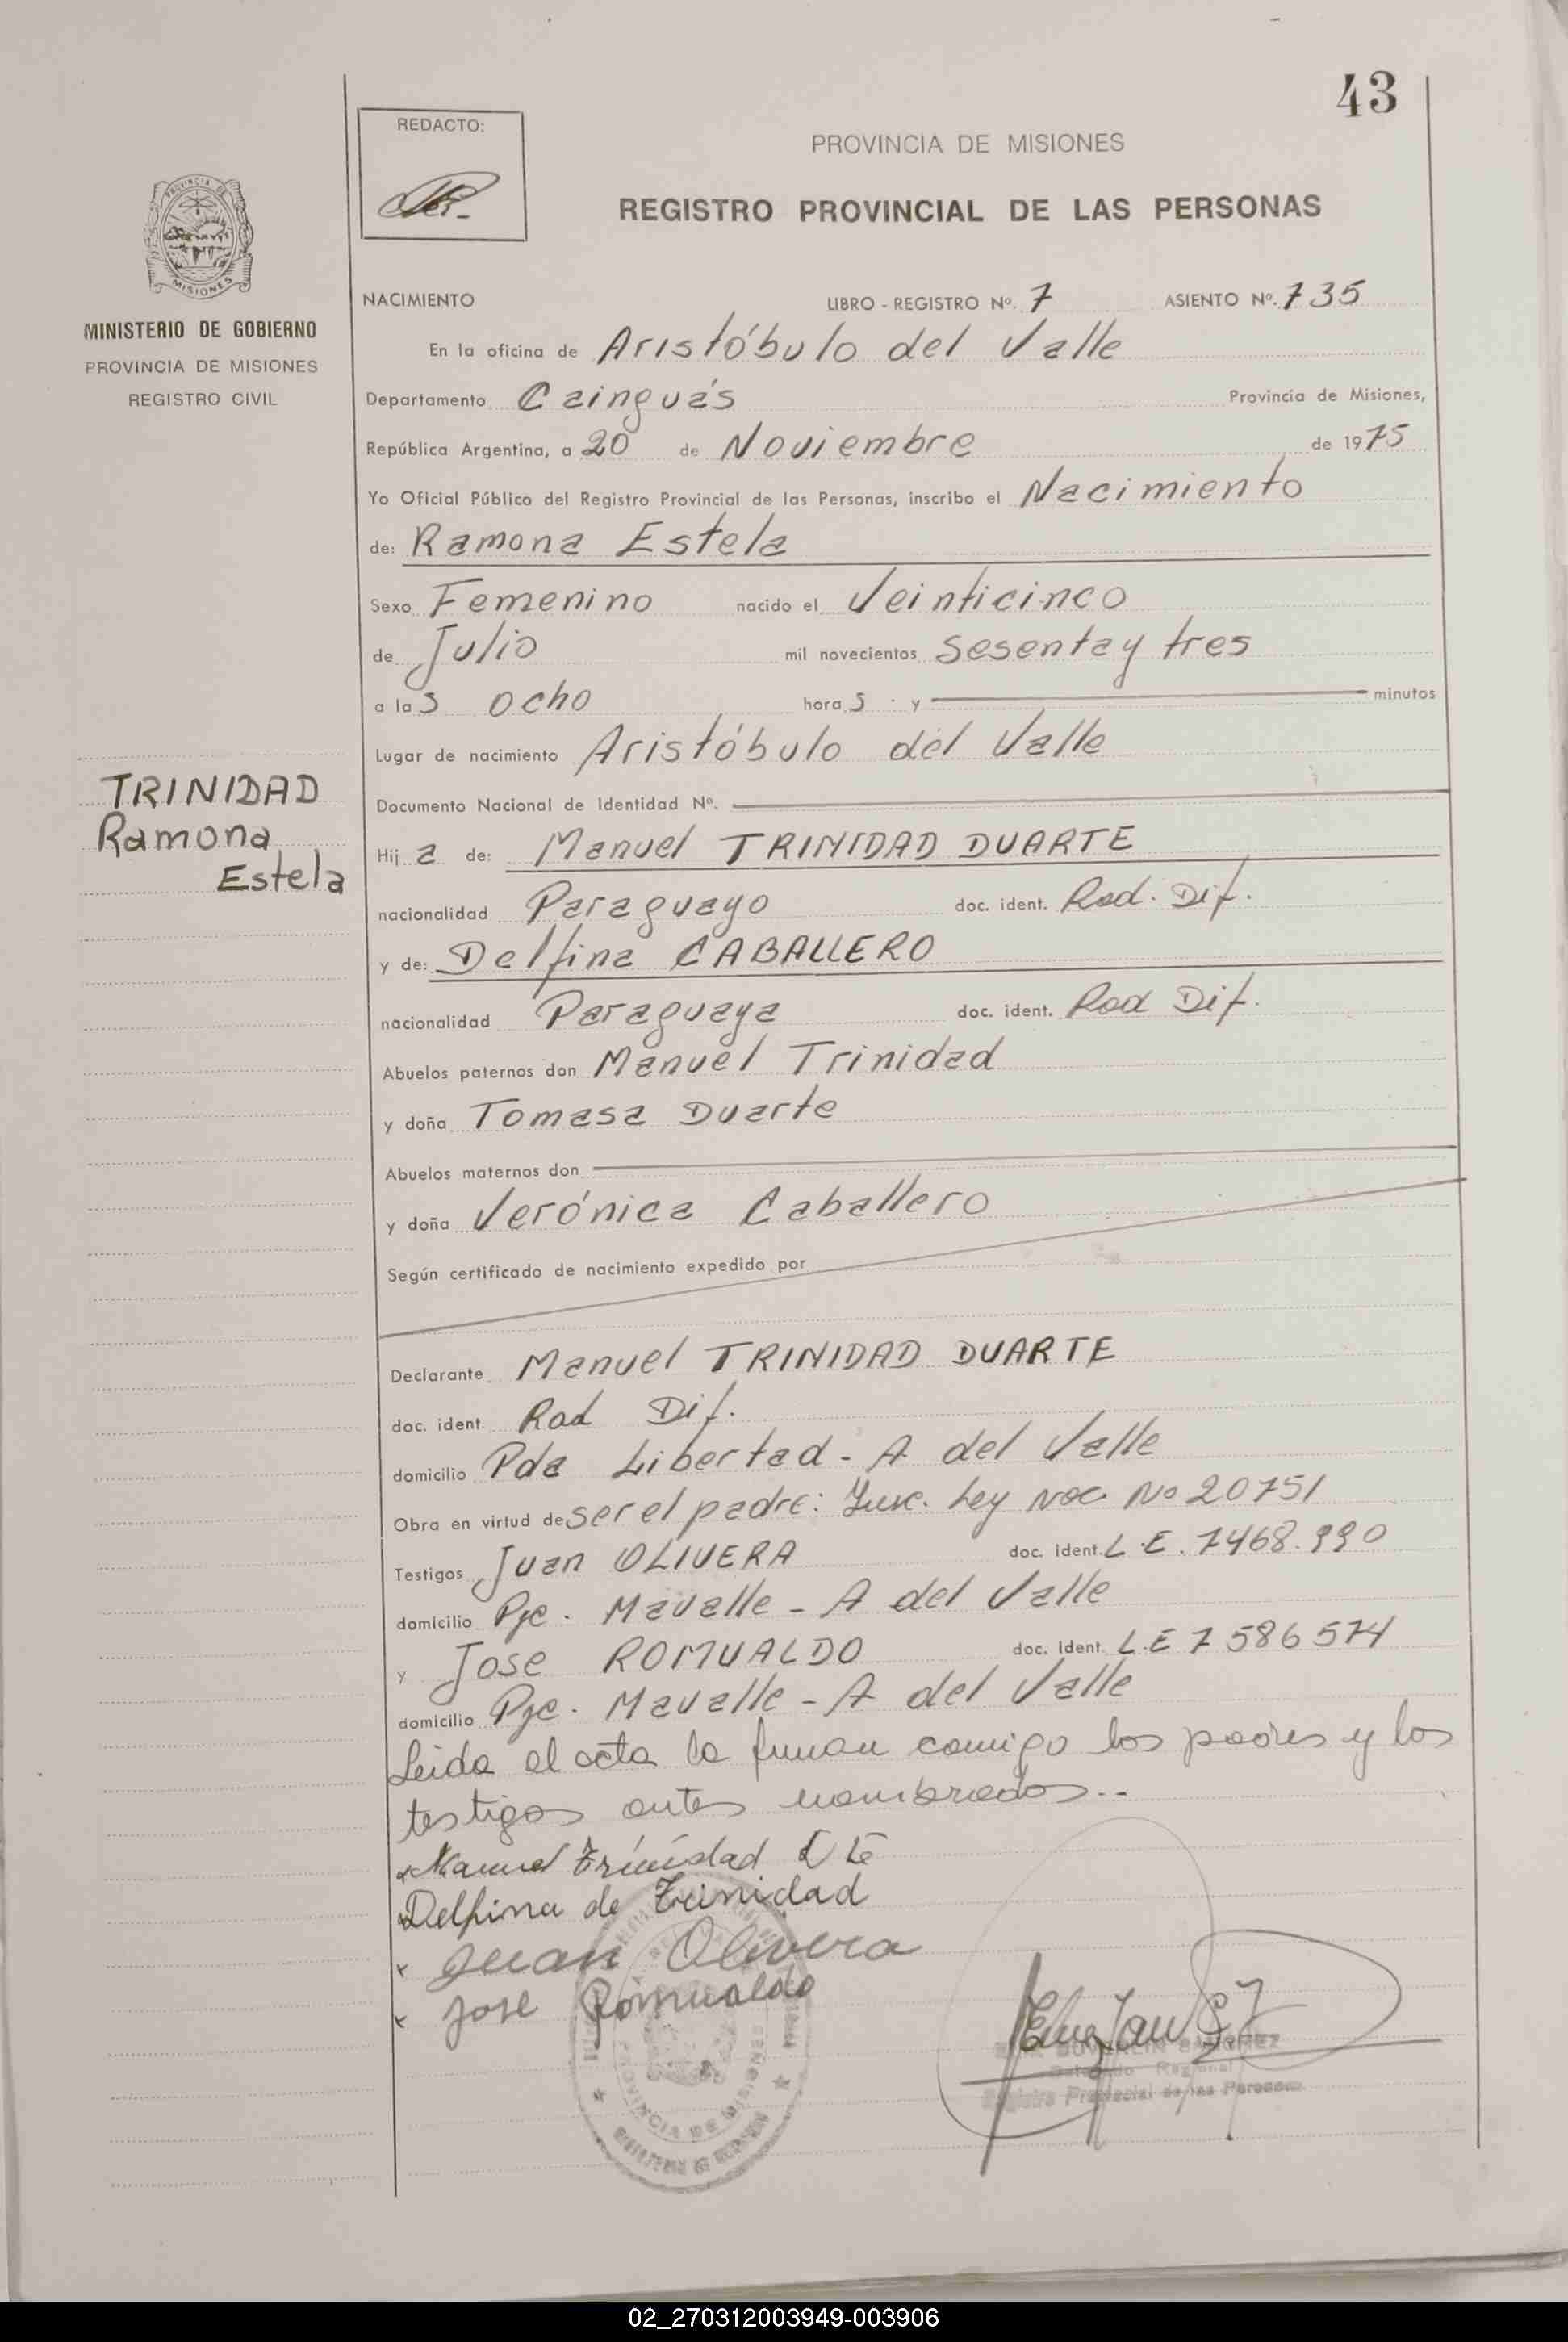 43
REDACTO:
PROVINCIA DE MISIONES
REGISTRO PROVINCIAL DE LAS PERSONAS
PROVINCIA DE
MISIONES
MINISTERIO DE GOBIERNO
PROVINCIA DE MISIONES
REGISTRO CIVIL
NACIMIENTO LIBRO - REGISTRO Nº. 7 ASIENTO Nº. 735
En la oficina de Aristóbulo del Valle
Departamento Cainguás Provincia de Misiones,
República Argentina, a 20 de Noviembre de 1975
Yo Oficial Público del Registro Provincial de las Personas, inscribo el Nacimiento
de: Ramona Estela
Sexo Femenino nacido el Veinticinco
de Julio mil novecientos Sesenta y tres
a las ocho horas y minutos
Lugar de nacimiento Aristóbulo del Valle
TRINIDAD
Ramona
Estela
Documento Nacional de Identidad Nº.
Hija de: Manuel TRINIDAD DUARTE
nacionalidad Paraguayo doc. ident. Rad. Dif.
y de: Delfina CABALLERO
nacionalidad Paraguaya doc. ident. Rad Dif.
Abuelos paternos don Manuel Trinidad
y doña Tomasa Duarte
Abuelos maternos don
y doña Verónica Caballero
Según certificado de nacimiento expedido por
Declarante Manuel TRINIDAD DUARTE
doc. ident. Rad Dif.
domicilio Pda Libertad - A del Valle
Obra en virtud de ser el padre: Insc. Ley Nac. Nº 20751
Testigos Juan OLIVERA doc. ident. L.E. 7468.990
domicilio Pje. Mavalle - A del Valle
y Jose ROMUALDO doc. Ident. L.E 7586574
domicilio Pje. Mavalle - A del Valle
Leida el acta la firman comigo los padres y los
testigos antes nombrados..
Manuel Trinidad
Delfina de Trinidad
Juan Olivera
Jose Romualdo
PROVINCIA DE MISIONES
Delegado Regional
Registro Provincial de las Personas
02_270312003949-003906